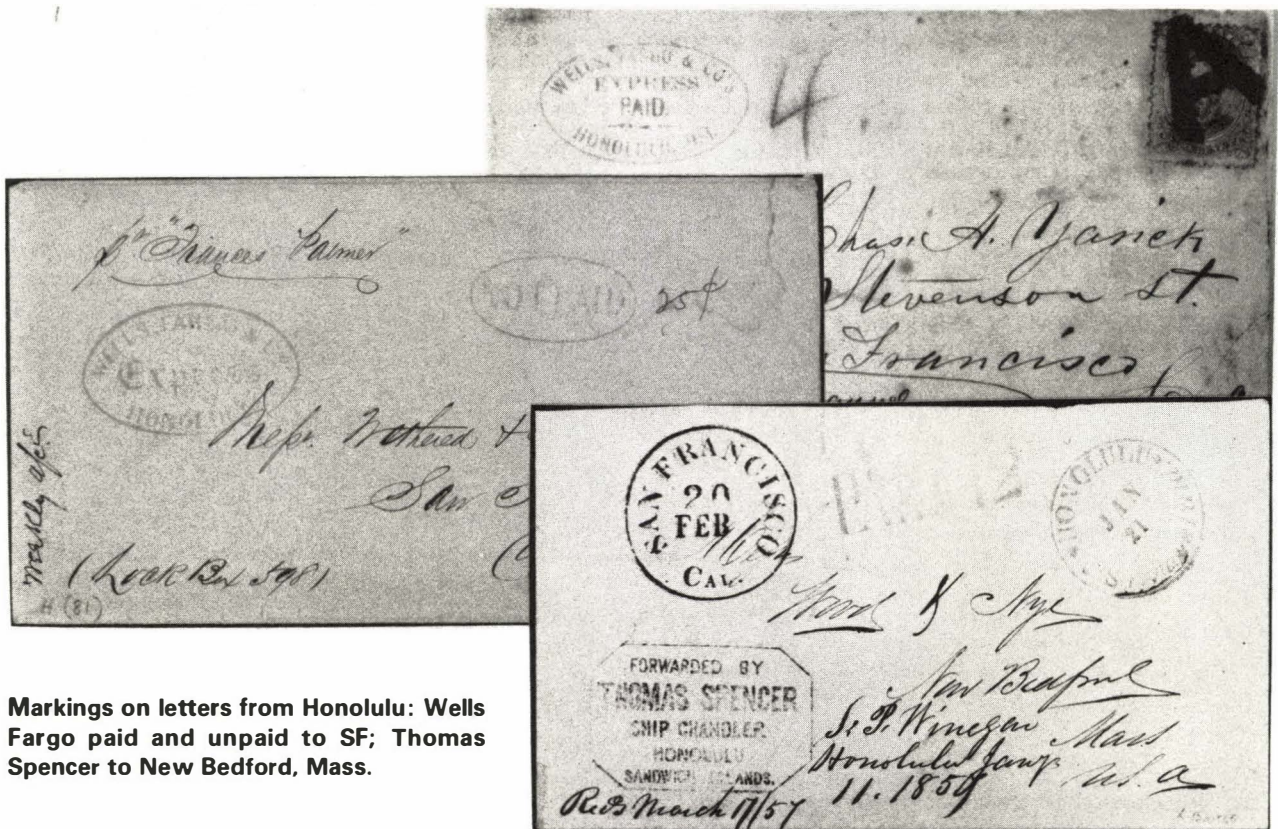 WELLS, FARGO & CO'S
EXPRESS
PAID
HONOLULU H.I.
4
Chas. A. Yarick
Stevenson St.
Francisco
pr "Frances Palmer"
25¢
WELLS, FARGO & CO'S
Express
HONOLULU
Mess. Wethered &
San
(Lock Box 598)
H (81)
SAN FRANCISCO
20
FEB
CAL.
HONOLULU
JAN
21
Wood & Nye
New Bedford
Mass
U.S.A
FORWARDED BY
THOMAS SPENCER
SHIP CHANDLER
HONOLULU
SANDWICH ISLANDS.
S. P. Winegar
Honolulu
11. 1857
Recd March 17/57
Markings on letters from Honolulu: Wells
Fargo paid and unpaid to SF; Thomas
Spencer to New Bedford, Mass.